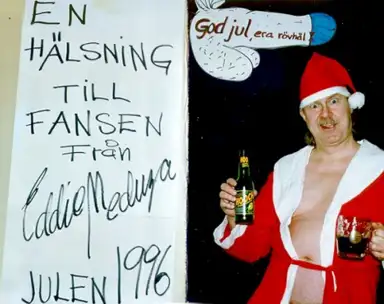 EN
HÄLSNING
TILL
FANSEN
Från
Eddie Meduza
JULEN 1996
God jul, era rövhål!